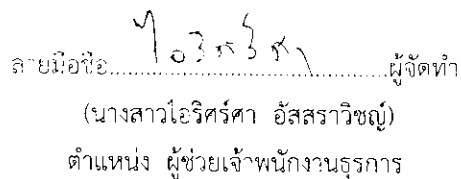 ลายมือชื่อ ไอริศร์ศา ผู้จัดทำ
(นางสาวไอริศร์ศา อัสสราวิชญ์)
ตำแหน่ง ผู้ช่วยเจ้าพนักงานธุรการ